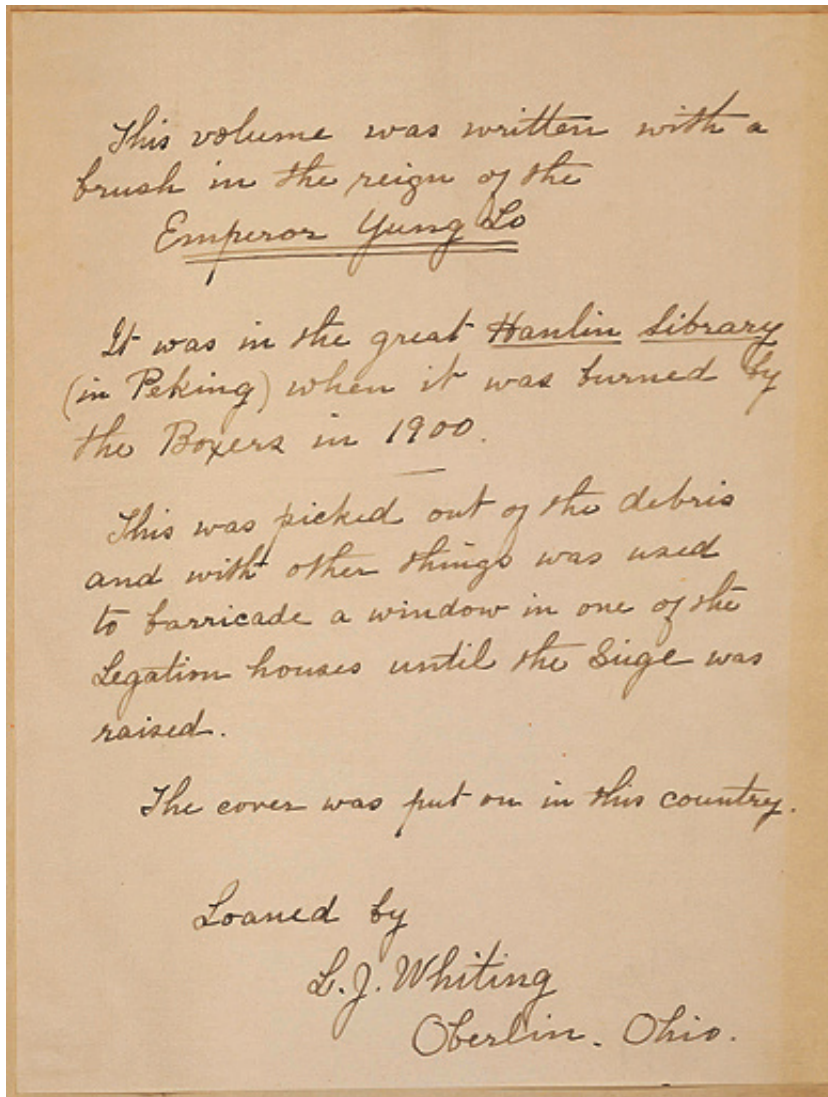 This volume was written with a
brush in the reign of the
Emperor Yung Lo
It was in the great Hanlin Library
(in Peking) when it was burned by
the Boxers in 1900.
This was picked out of the debris
and with other things was used
to barricade a window in one of the
Legation houses until the Siege was
raised.
The cover was put on in this country.
Loaned by
L. J. Whiting
Oberlin. Ohio.